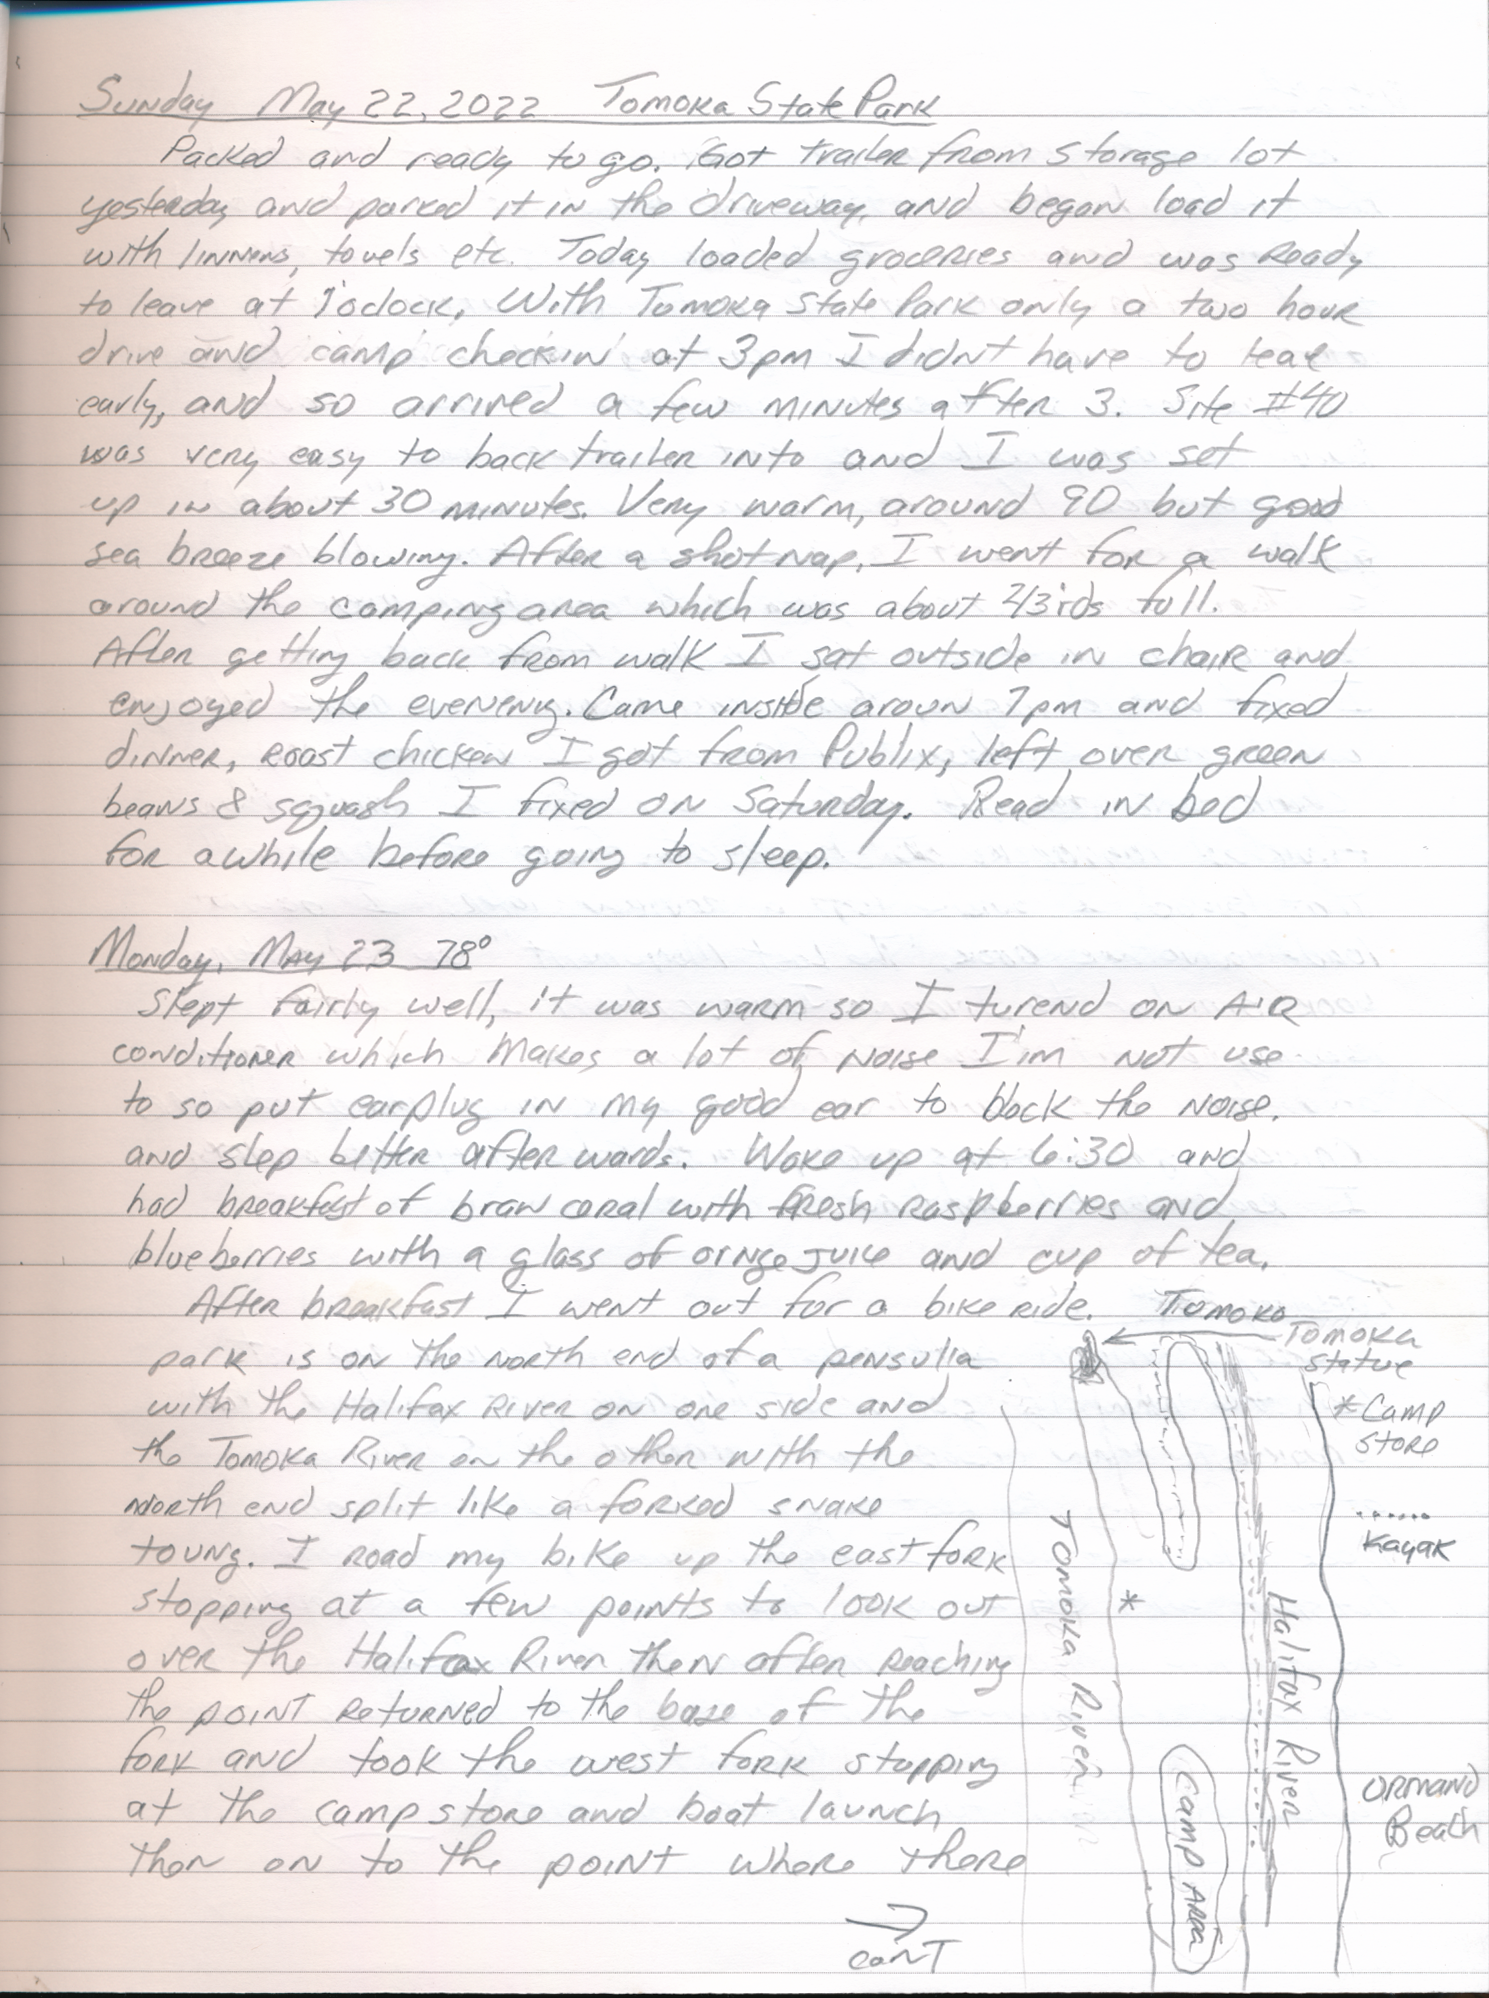 Sunday May 22, 2022 Tomoka State Park
Packed and ready to go. Got trailer from storage lot
yesterday and parked it in the driveway, and began load it
with linnens, towels etc. Today loaded groceries and was Ready
to leave at 1 o'clock, With Tomoka State Park only a two hour
drive and camp checkin at 3pm I didn't have to leav
early, and so arrived a few minutes after 3. Site #40
was very easy to back trailer into and I was set
up in about 30 minutes. Very warm, around 90 but good
sea breeze blowing. After a shot nap, I went for a walk
around the camping area which was about 2/3rds full.
After getting back from walk I sat outside in chair and
enjoyed the evening. Came inside aroun 7pm and fixed
dinner, roast chicken I got from Publix, left over green
beans & squash I fixed on Saturday. Read in bed
for awhile before going to sleep.
Monday, May 23 78°
Slept fairly well, it was warm so I turend on AIR
conditioner which makes a lot of noise I'm not use
to so put earplug in my good ear to block the noise.
and slep better after wards. Woke up at 6:30 and
had breakfast of bran ceral with fresh raspberries and
blueberries with a glass of ornge juice and cup of tea.
After breakfast I went out for a bike ride. Tomoka
park is on the north end of a pensulla
with the Halifax River on one side and
the Tomoka River on the other with the
north end split like a forked snake
toung. I road my bike up the east fork
stopping at a few points to look out
over the Halifax River then after reaching
the point returned to the base of the
fork and took the west fork stopping
at the camp store and boat launch
then on to the point where there
cont
Tomoka
statue
*Camp
store
......
Kayak
*
Tomoka River
Halifax River
Camp Area
Ormand
Beach